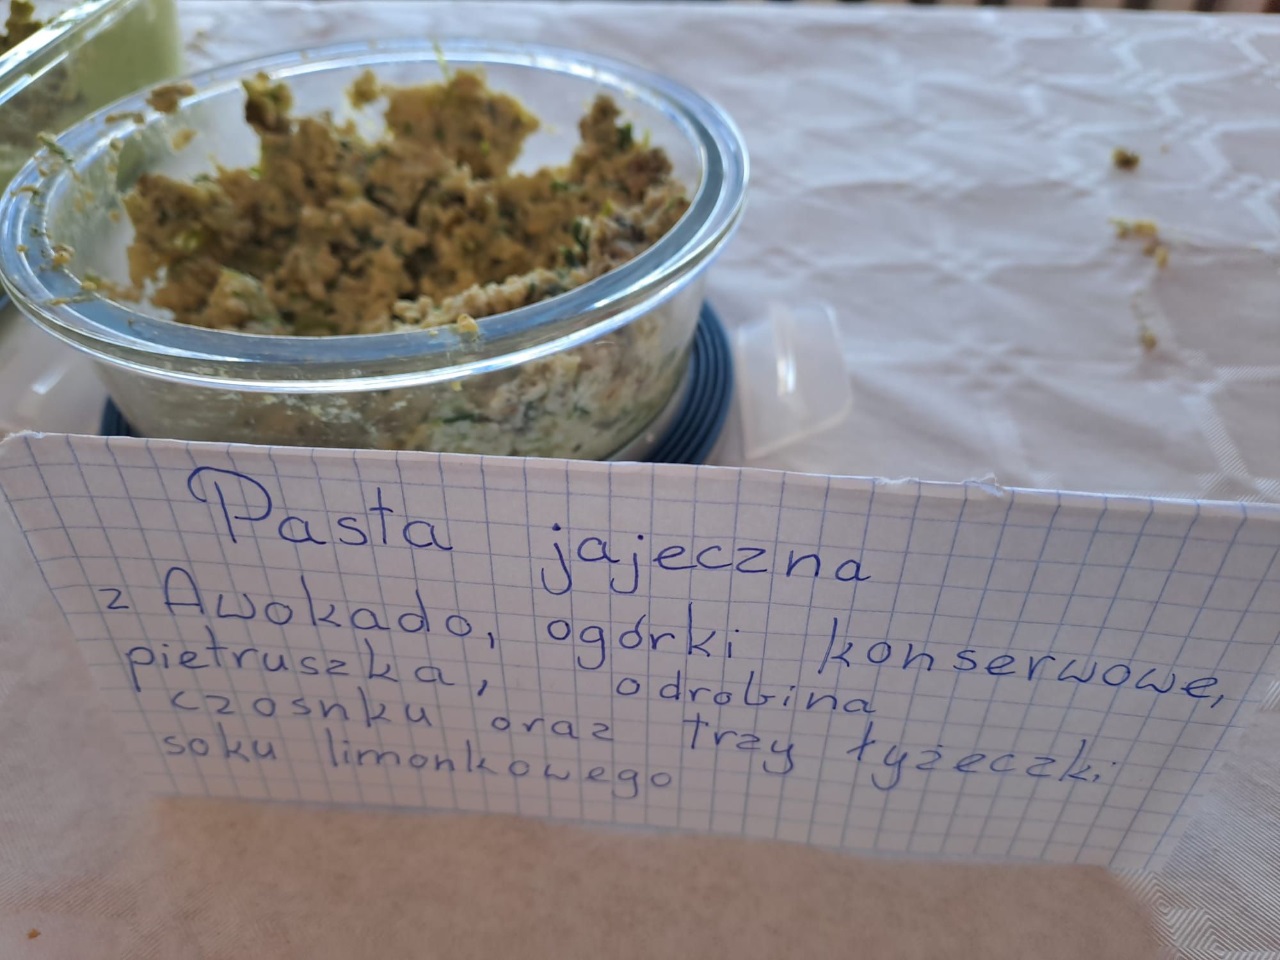 Pasta jajeczna
z Awokado, ogórki konserwowe,
pietruszka, odrobina
czosnku oraz trzy łyżeczki
soku limonkowego